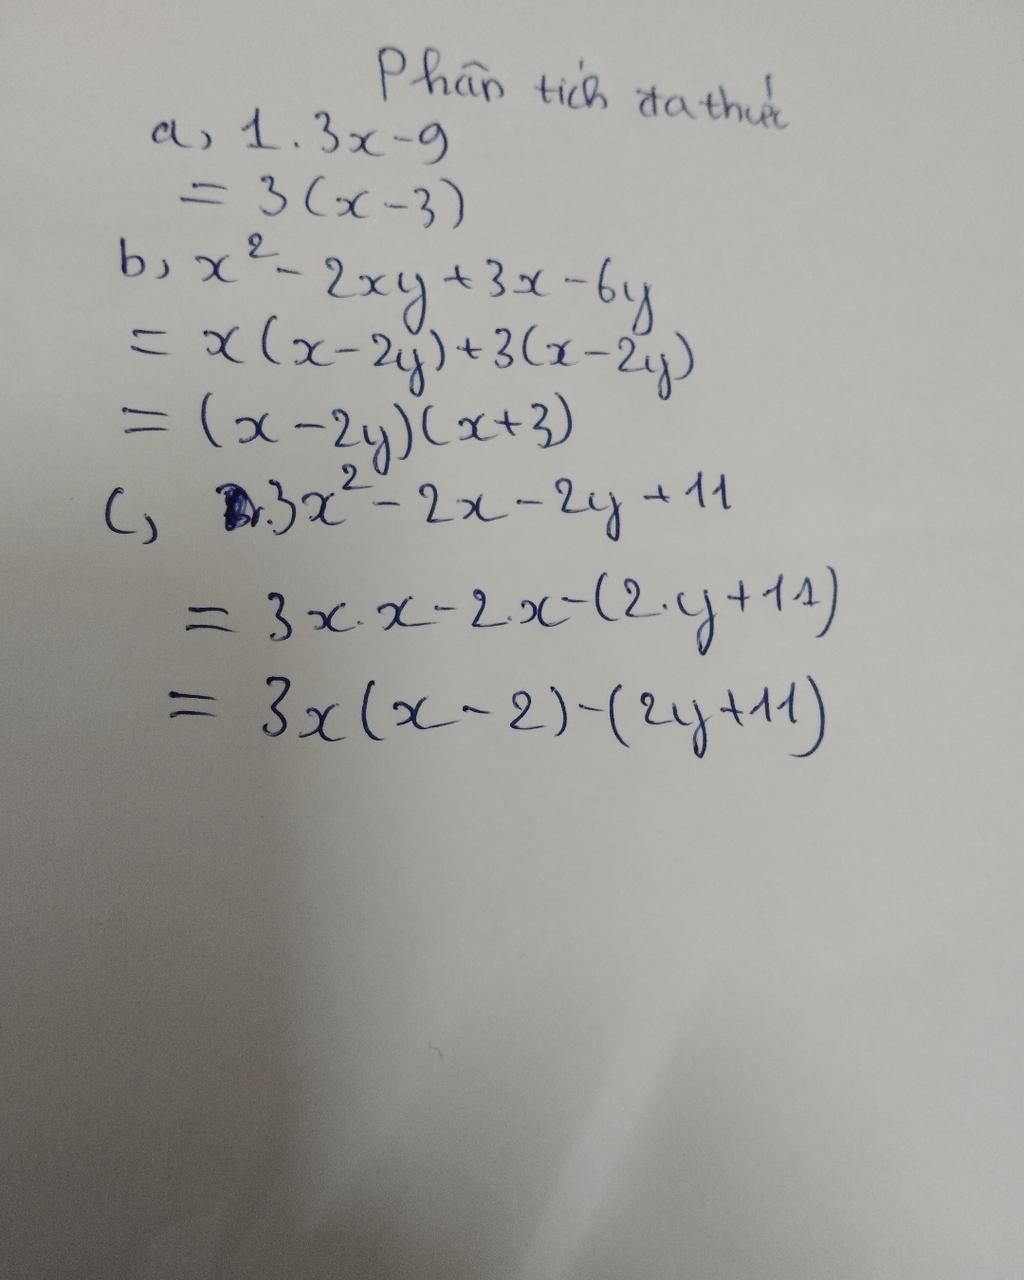 Phân tích đa thức
a, 1.3x-9
= 3(x-3)
b, x²- 2xy+3x-6y
= x(x-2y)+3(x-2y)
= (x-2y)(x+3)
c, 3x²-2x-2y+11
= 3x.x-2.x-(2.y+11)
= 3x(x-2)-(2y+11)